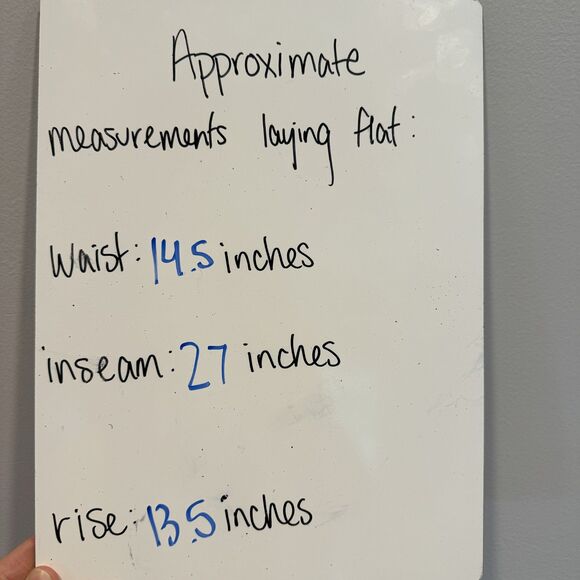 Approximate
measurements laying flat:
waist: 14.5 inches
inseam: 27 inches
rise: 13.5 inches